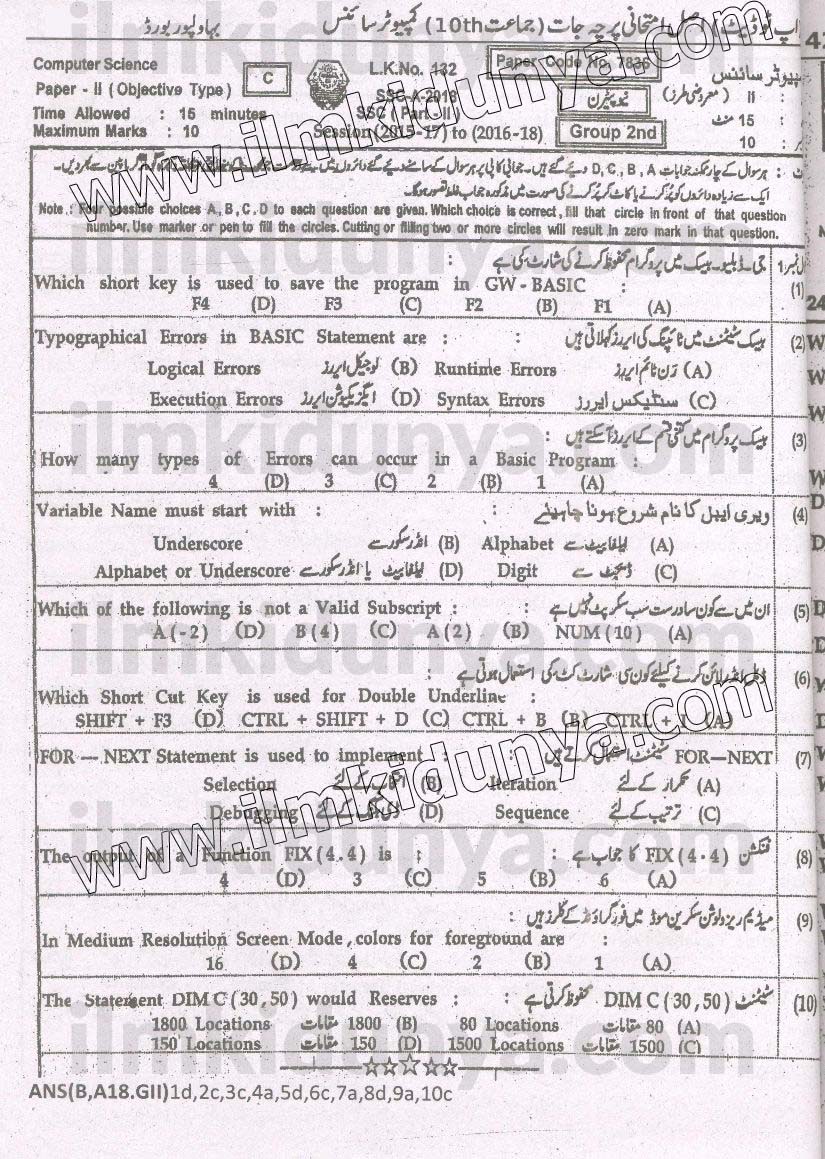 اپ ٹو ڈیٹ امتحانی پرچہ جات (جماعت 10th) کمپیوٹر سائنس بہاولپور بورڈ
Computer Science
Paper - II (Objective Type) C
Time Allowed : 15 minutes
Maximum Marks : 10
L.K.No. 132
SSC-A-2018
SSC (Part-II)
Session (2015-17) to (2016-18)
Paper Code No. 7836
نیو پیٹرن
Group 2nd
سائنس
II (معروضی طرز)
15 منٹ
10
Note : Four possible choices A, B, C, D to each question are given. Which choice is correct, fill that circle in front of that question
number. Use marker or pen to fill the circles. Cutting or filling two or more circles will result in zero mark in that question.
جی ڈبلیو۔ بیسک میں پروگرام محفوظ کرنے کی شارٹ کی ہے :
Which short key is used to save the program in GW - BASIC : (1)
F4 (D) F3 (C) F2 (B) F1 (A)
Typographical Errors in BASIC Statement are : : بیسک سٹیٹمنٹ میں ٹائپنگ کی ایررز کہلاتی ہیں (2)
Logical Errors لوجیکل ایررز (B) Runtime Errors رن ٹائم ایررز (A)
Execution Errors ایگزیکیوشن ایررز (D) Syntax Errors سنٹیکس ایررز (C)
بیسک پروگرام میں کتنی قسم کے ایررز آسکتے ہیں : (3)
How many types of Errors can occur in a Basic Program :
4 (D) 3 (C) 2 (B) 1 (A)
Variable Name must start with : : ویری ایبل کا نام شروع ہونا چاہیئے (4)
Underscore انڈر سکور سے (B) Alphabet ایلفابیٹ سے (A)
Alphabet or Underscore ایلفابیٹ یا انڈر سکور سے (D) Digit ڈیجٹ سے (C)
Which of the following is not a Valid Subscript : : ان میں سے کون سا درست سب سکرپٹ نہیں ہے (5)
A (-2) (D) B (4) (C) A (2) (B) NUM (10) (A)
ڈبل انڈر لائن کرنے کیلئے کون سی شارٹ کٹ کی استعمال ہوتی ہے : (6)
Which Short Cut Key is used for Double Underline :
SHIFT + F3 (D) CTRL + SHIFT + D (C) CTRL + B (B) CTRL + I (A)
FOR — NEXT Statement is used to implement : : FOR—NEXT سٹیٹمنٹ استعمال کرتے ہیں (7)
Selection (B) Iteration تکرار کے لئے (A)
Debugging (D) Sequence ترتیب کے لئے (C)
The output of a Function FIX (4.4) is : : فنکشن FIX (4.4) کا جواب ہے (8)
4 (D) 3 (C) 5 (B) 6 (A)
میڈیم ریزولوشن سکرین موڈ میں فور گراؤنڈ کے کلرز ہیں : (9)
In Medium Resolution Screen Mode, colors for foreground are :
16 (D) 4 (C) 2 (B) 1 (A)
The Statement DIM C (30,50) would Reserves : : سٹیٹمنٹ DIM C (30,50) محفوظ کرتی ہے (10)
1800 Locations 1800 مقامات (B) 80 Locations 80 مقامات (A)
150 Locations 150 مقامات (D) 1500 Locations 1500 مقامات (C)
ANS(B,A18.GII)1d,2c,3c,4a,5d,6c,7a,8d,9a,10c
www.ilmkidunya.com
www.ilmkidunya.com
ilmkidunya.com